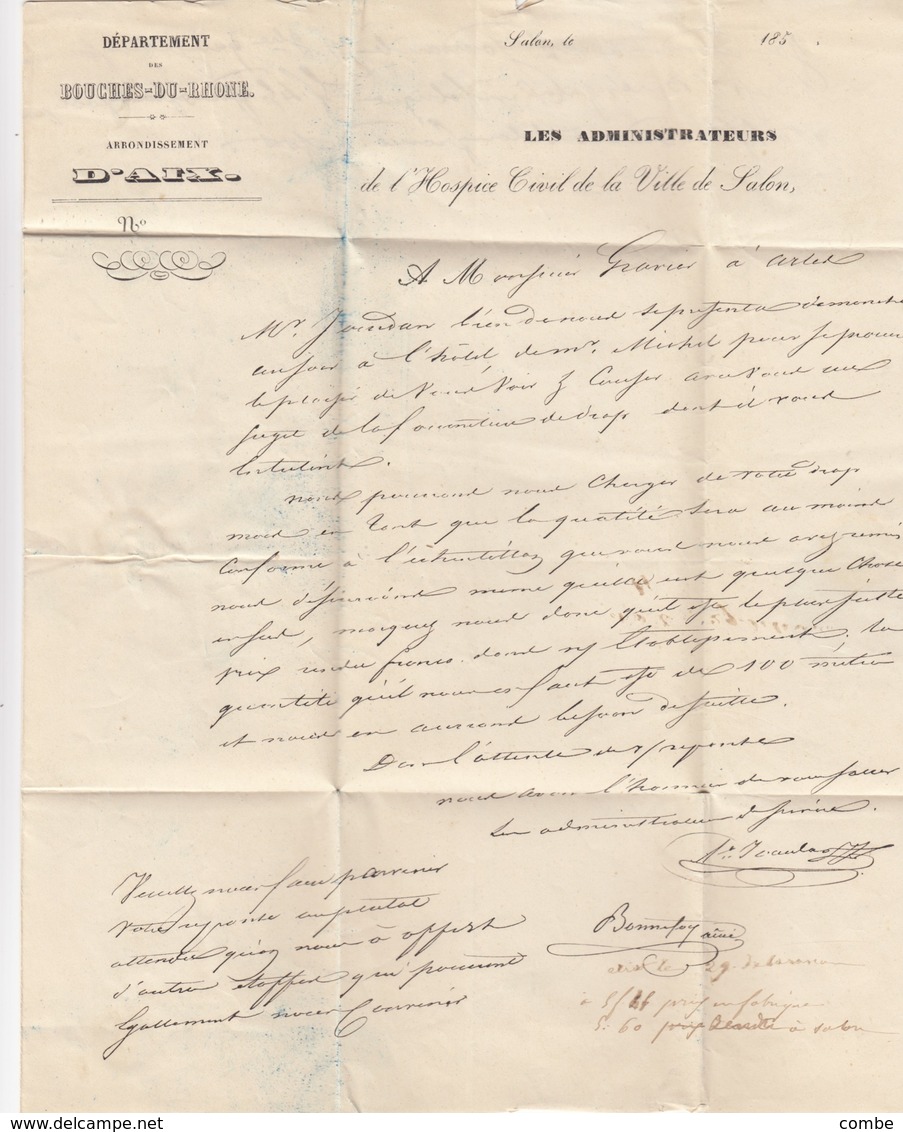 DÉPARTEMENT
DES
BOUCHES-DU-RHONE.
ARRONDISSEMENT
D'AIX.
No
Salon, le 185 .
LES ADMINISTRATEURS
de l'Hospice Civil de la Ville de Salon,
A Monsieur Gravier à Arles
Mr. Jourdan l'un de nous se présenta dimanche
au soir à l'hôtel de mr. Michel pour se procurer
le plaisir de vous voir & causer avec vous au
sujet de la fourniture de drap dont il vous
nous pourrons nous charger de votre drap
mais en tant que la quatité sera au moins
conforme à l'échantillon que vous nous avez remis
nous désirerions meme quelque chose
marquez nous donc quel est le plus juste
prix rendu franco dans n/ Etablissement, la
quantité qu'il nous en faut est de 100 mètres
et nous en aurions besoin de suite.
Dans l'attente de v/ reponse
nous avons l'honneur de vous saluer
Les administrateurs
Bonnefoy ainé
Veuillez nous faire parvenir
votre reponse au plutot
attendu qu'on nous à offert
d'autres étoffes qui pourront
Egallement nous Convenir
le 29
à 5/ prix en fabrique
5. 60 prix à salon
combe